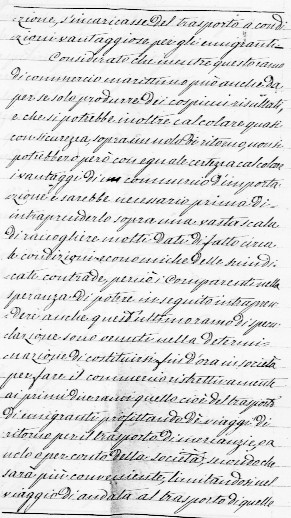 zione, s'incaricasse del trasporto a condi
zioni vantaggiose per gli emigranti.
Considerato che mentre questo ramo
di commercio marittimo può anche da
per se solo produrre dei cospicui risultati,
e che si potrebbe inoltre calcolare quasi
con sicurezza sopra un nolo di ritorno, non si
potrebbero però con eguale certezza calcolare
i vantaggi di un commercio d'importa
zione e sarebbe necessario prima di
intraprenderlo sopra una vasta scala
di raccogliere molti dati di fatto circa
le condizioni economiche delle suindi
cate contrade, perciò i Comparenti nella
speranza di potere in seguito intrapren
dere anche quest'ultimo ramo di specu
lazione sono venuti nella determi
nazione di costituirsi fin d'ora in società
per fare il commercio ristrettivamente
ai primi due rami quello cioè del trasporto
di emigranti profittando di viaggi di
ritorno per il trasporto di mercanzie, o a
nolo o per conto della società, secondo che
sarà più conveniente, limitandosi nel
viaggio di andata al trasporto di quelle